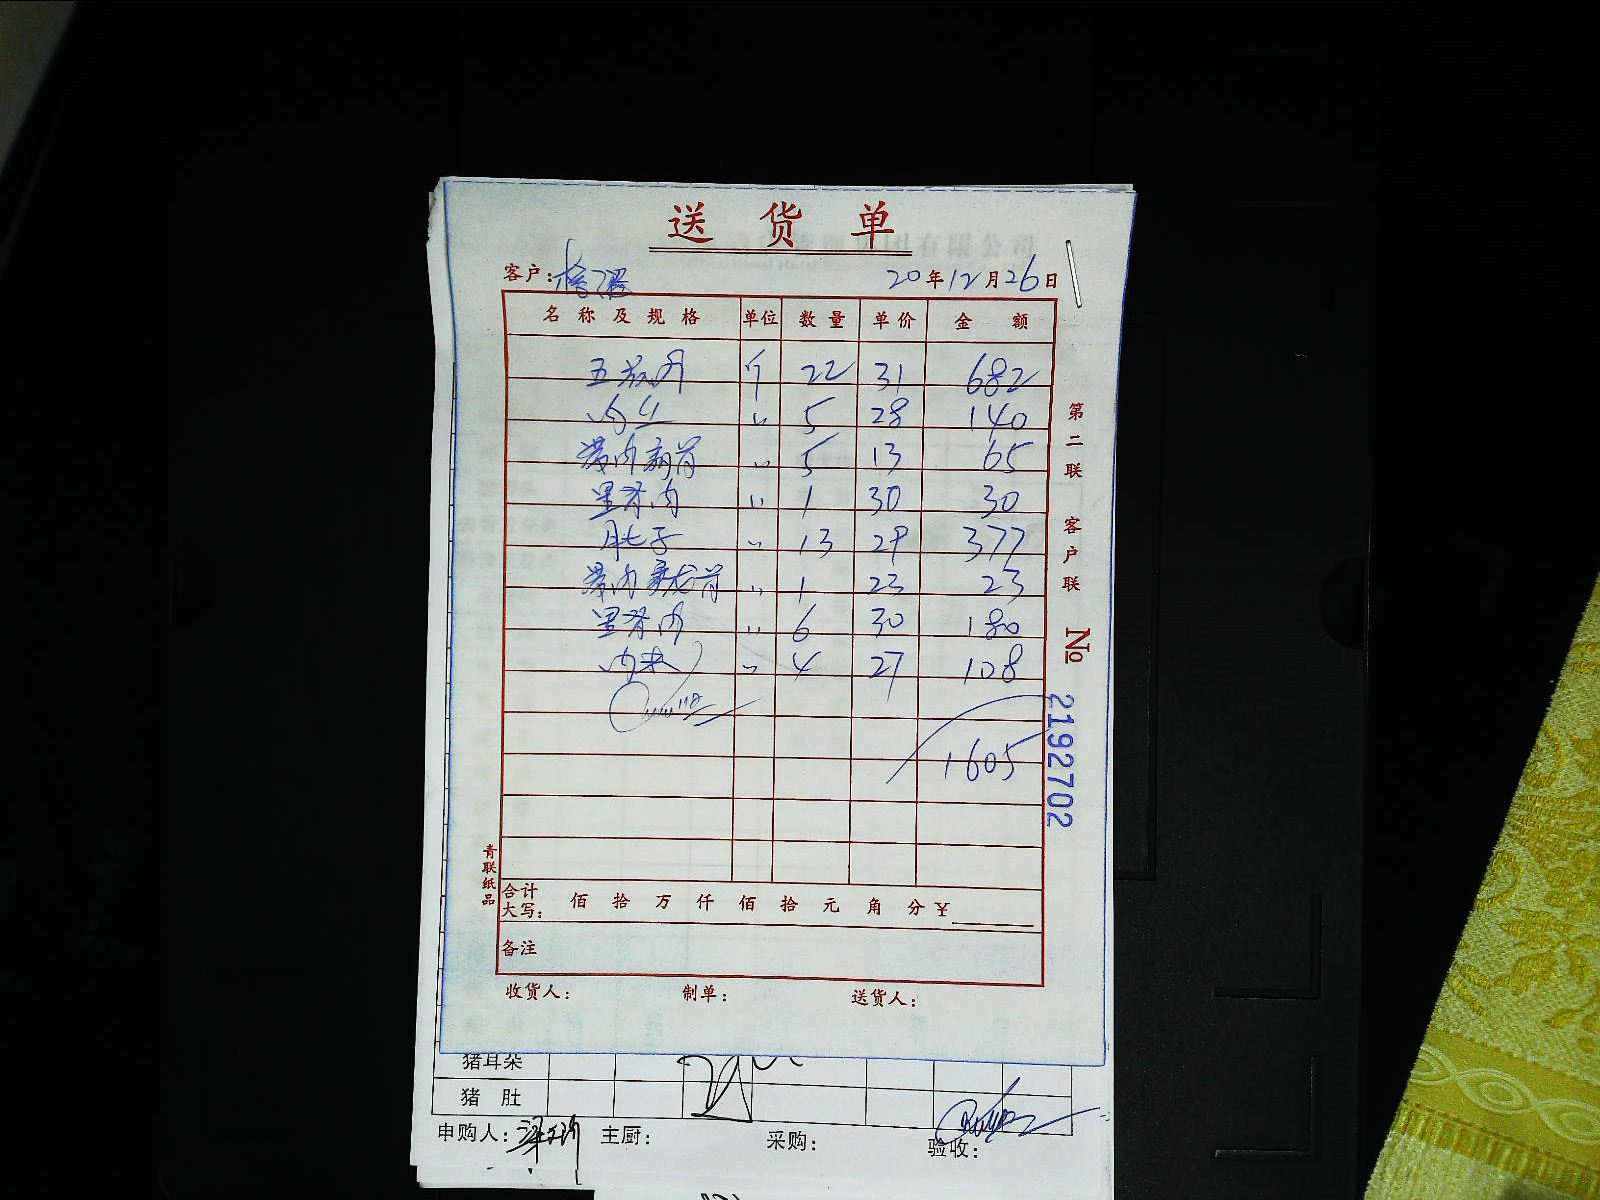 送货单
客户: 20年12月26日
名称及规格 单位 数量 单价 金额
五花肉 斤 22 31 682
肉丝 〃 5 28 140
带肉扇骨 〃 5 13 65
里脊肉 〃 1 30 30
肚子 〃 13 29 377
带肉龙骨 〃 1 23 23
里脊肉 〃 6 30 180
肉末 〃 4 27 108
1605
合计大写: 佰 拾 万 仟 佰 拾 元 角 分 ¥
备注
收货人: 制单: 送货人:
青联纸品
第二联 客户联
No 2192702
猪耳朵
猪肚
申购人: 主厨: 采购: 验收: